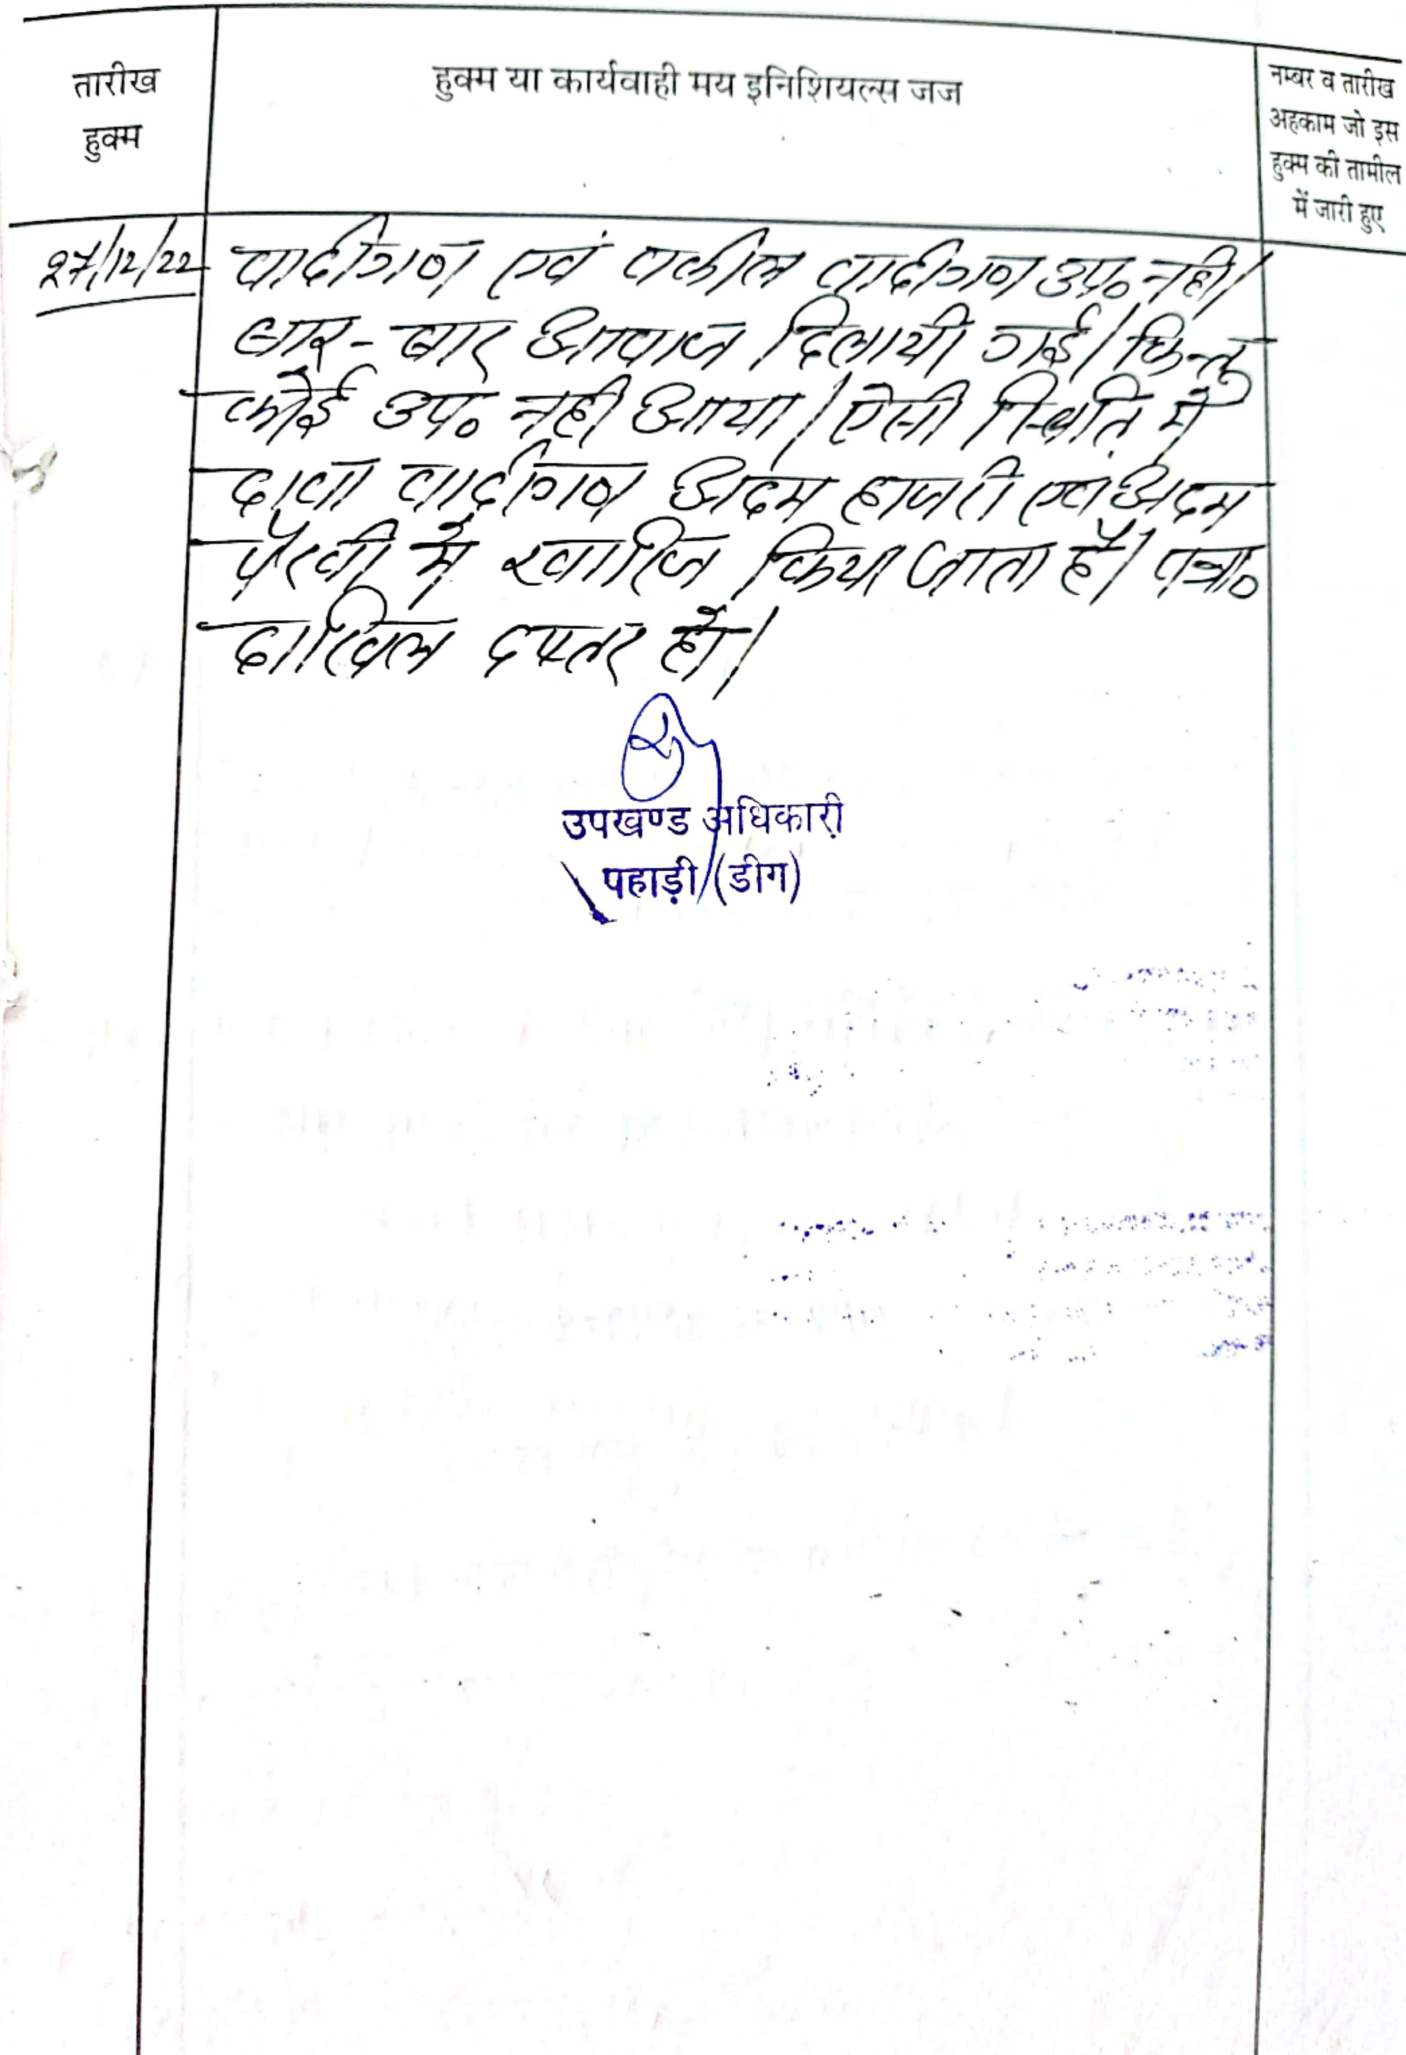 तारीख
हुक्म
हुक्म या कार्यवाही मय इनिशियल्स जज
नम्बर व तारीख
अहकाम जो इस
हुक्म की तामील
में जारी हुए
27/12/22
वादीगण एवं वकील वादीगण उप० नहीं।
बार-बार आवाज दिलायी गई। किन्तु
कोई उप० नहीं आया। ऐसी स्थिति में
दावा वादीगण अदम हाजरी एवं अदम
पैरवी में खारिज किया जाता है। पत्रा०
दाखिल दफ्तर हो।
उपखण्ड अधिकारी
पहाड़ी (डीग)